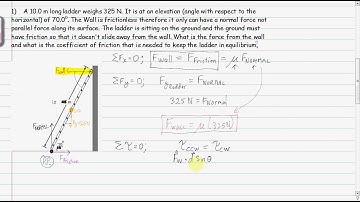 1) A 10.0 m long ladder weighs 325 N. It is at an elevation (angle with respect to the
horizontal) of 70.0°. The Wall is frictionless therefore it only can have a normal force not
parallel force along its surface. The ladder is sitting on the ground and the ground must
have friction so that it doesn't slide away from the wall. What is the force from the wall
and what is the coefficient of friction that is needed to keep the ladder in equilibrium,
ΣFx=0; Fwall = Ffriction = μ FNormal
Fwall
ΣFy=0; Fgladder = FNormal
325N = FNormal
Fwall = μ (325N)
Στ=0; τccw = τcw
Fw · d sinθ
Ffriction
PP